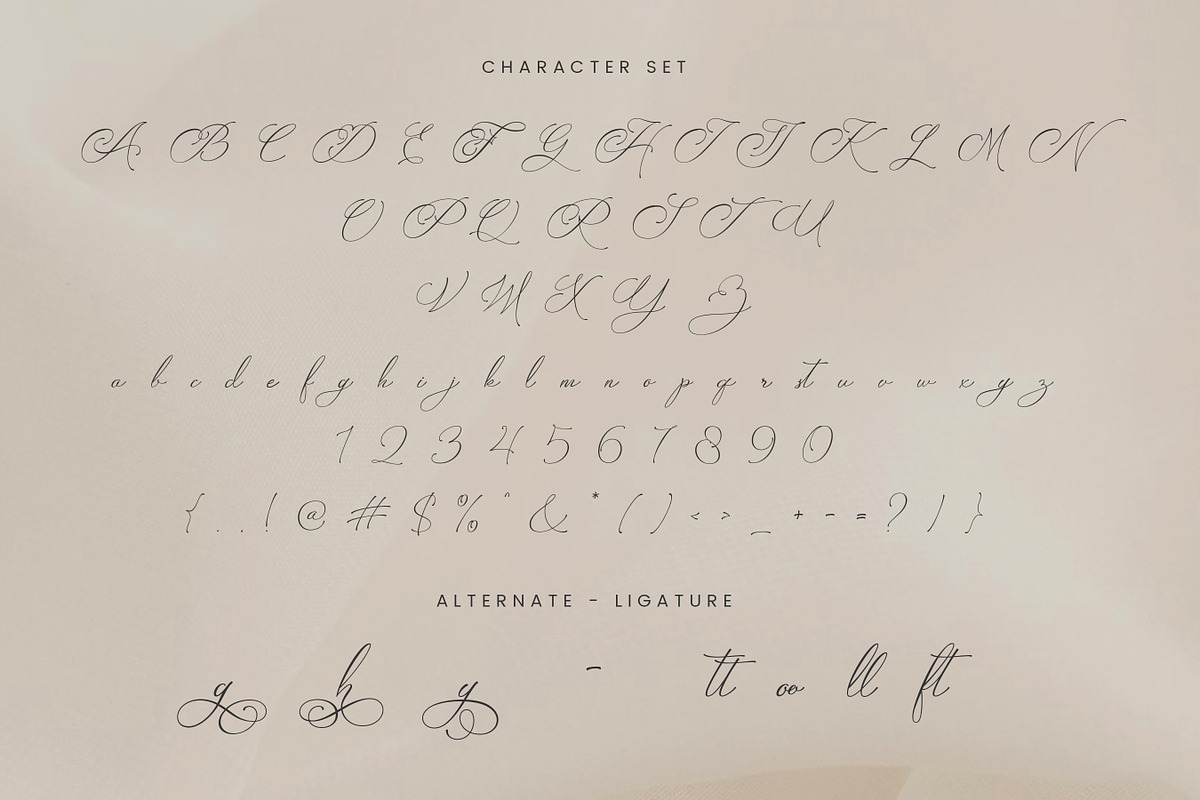 CHARACTER SET
A B C D E F G H I J K L M N
O P Q R S T U
V W X Y Z
a b c d e f g h i j k l m n o p q r s t u v w x y z
1 2 3 4 5 6 7 8 9 0
{ . . ! @ # $ % ^ & * ( ) < > _ + - = ? / }
ALTERNATE - LIGATURE
g h y - tt oo ll ft